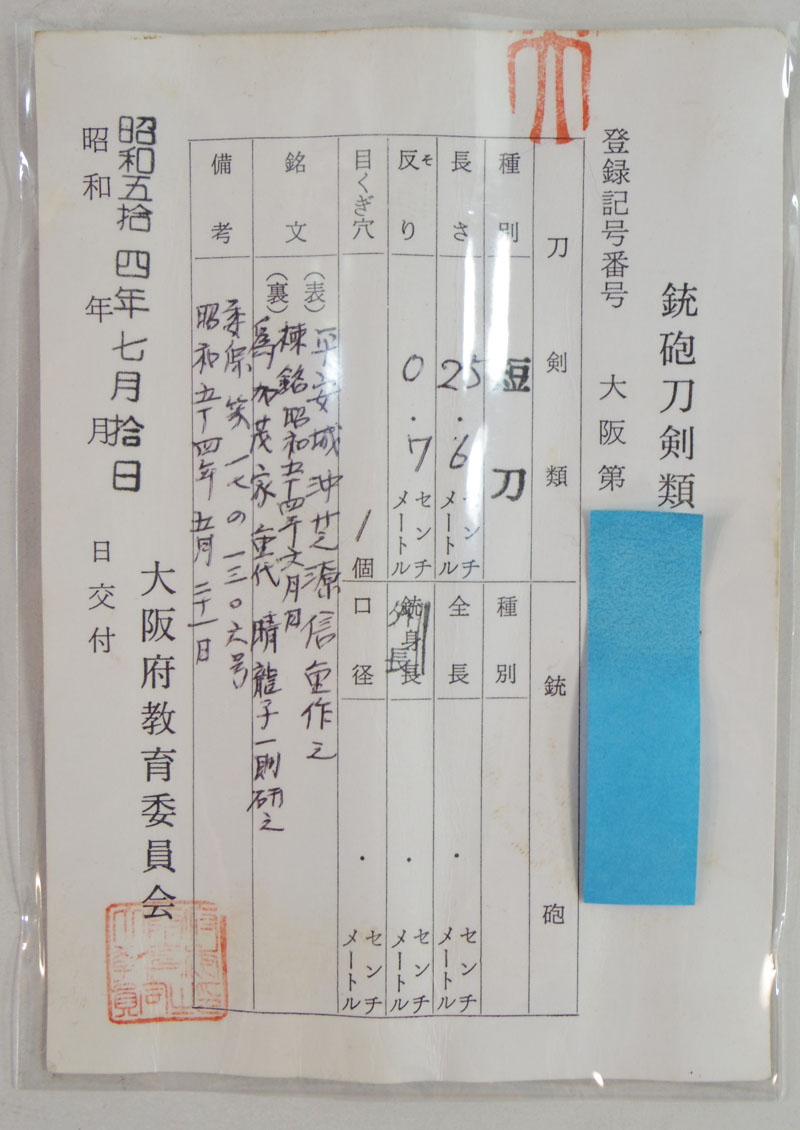 銃砲刀剣類
登録記号番号 大阪第
刀剣類
銃砲
種別
短刀
種別
長さ
25.6
センチメートル
全長
・
センチメートル
反り
そ
0.7
センチメートル
銃身長
・
センチメートル
目くぎ穴
1個
口径
・
センチメートル
銘文
(表)
平安城沖芝源信重作之
棟銘昭和五十四年六月日
(裏)
為加茂家重代 晴龍子一則研之
備考
委保 一七の一三〇六号
昭和五十四年五月二十一日
昭和五拾四年七月拾日
昭和 年 月 日交付
大阪府教育委員会